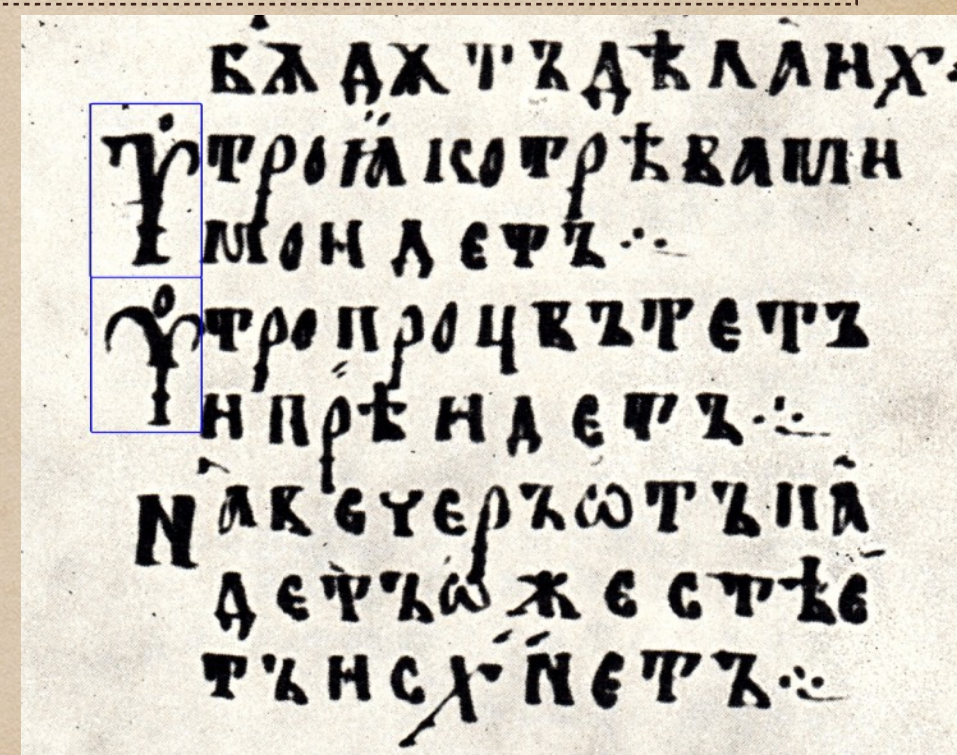 БѦДѪТЪДѢЛАИХ·
ꙊТРОꙖКОТРѢВАМИ
МОИДЕТЪ჻
ꙊТРОПРОЦВЪТЕТЪ
ИПРѢИДЕТЪ჻
NАВЕЧЕРЪѠТЪПА
ДЕТЪѠЖЕСТѢЕ
ТЪИСХ·NЕТЪ჻